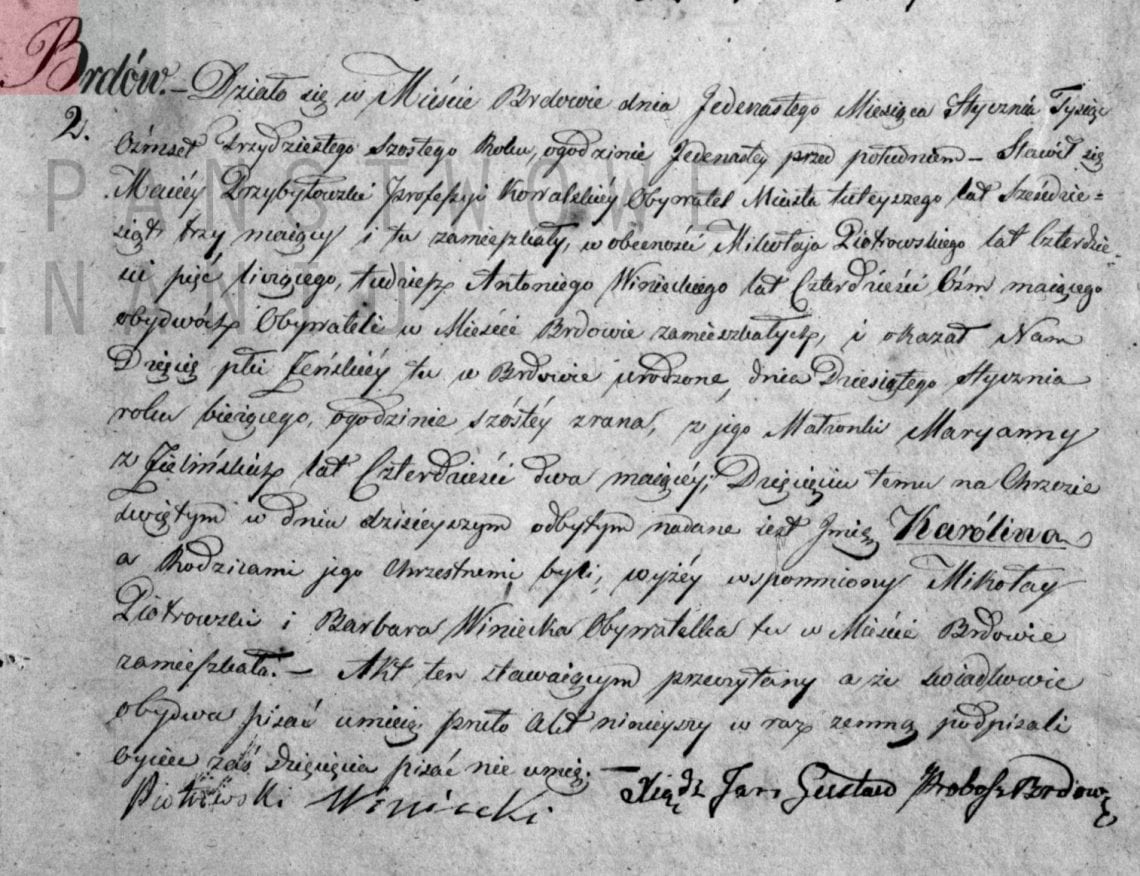 Brdów. – Działo się w Mieście Brdowie dnia Jedenastego Miesiąca Stycznia Tysiąc
2. Ośmset Trzydziestego Szostego Roku, o godzinie Jedenastey przed południem – Stawił się
PAŃSTWOWE
Maciéy Przybyłowski Professyi Kowalskiéy Obywatel Miasta tuteyszego lat Sześćdzie=
siąt trzy maiący i tu zamieszkały, w obecności Mikołaja Piotrowskiego lat Czterdzie=
ści pięć liczącego, tudzież Antoniego Winieckiego lat Czterdzieści Ośm maiącego
obydwóch Obywateli w Mieście Brdowie zamieszkałych, i okazał Nam
Dziecię płci Żeńskiéy tu w Brdowie urodzone, dnia Dziesiątego Stycznia
roku bieżącego, o godzinie szóstéy zrana, z jego Małżonki Maryanny
z Zielińskich lat Czterdzieści dwa maiącéy; Dziecięciu temu na Chrzcie
świętym w dniu dzisieyszym odbytym nadane iest Jmię Karólina
a Rodzicami jego Chrzestnemi byli, wyżéy wspomniony Mikołay
Piotrowski i Barbara Winiecka Obywatelka tu w Mieście Brdowie
zamieszkała. – Akt ten stawaiącym przeczytany a że świadkowie
obydwa pisać umieią, przeto Akt ninieyszy w raz zemną podpisali
oyciec zaś Dziecięcia pisać nie umié. –
Piotrowski Winiecki Xiądz Jan Gustaw Probosz Brdow